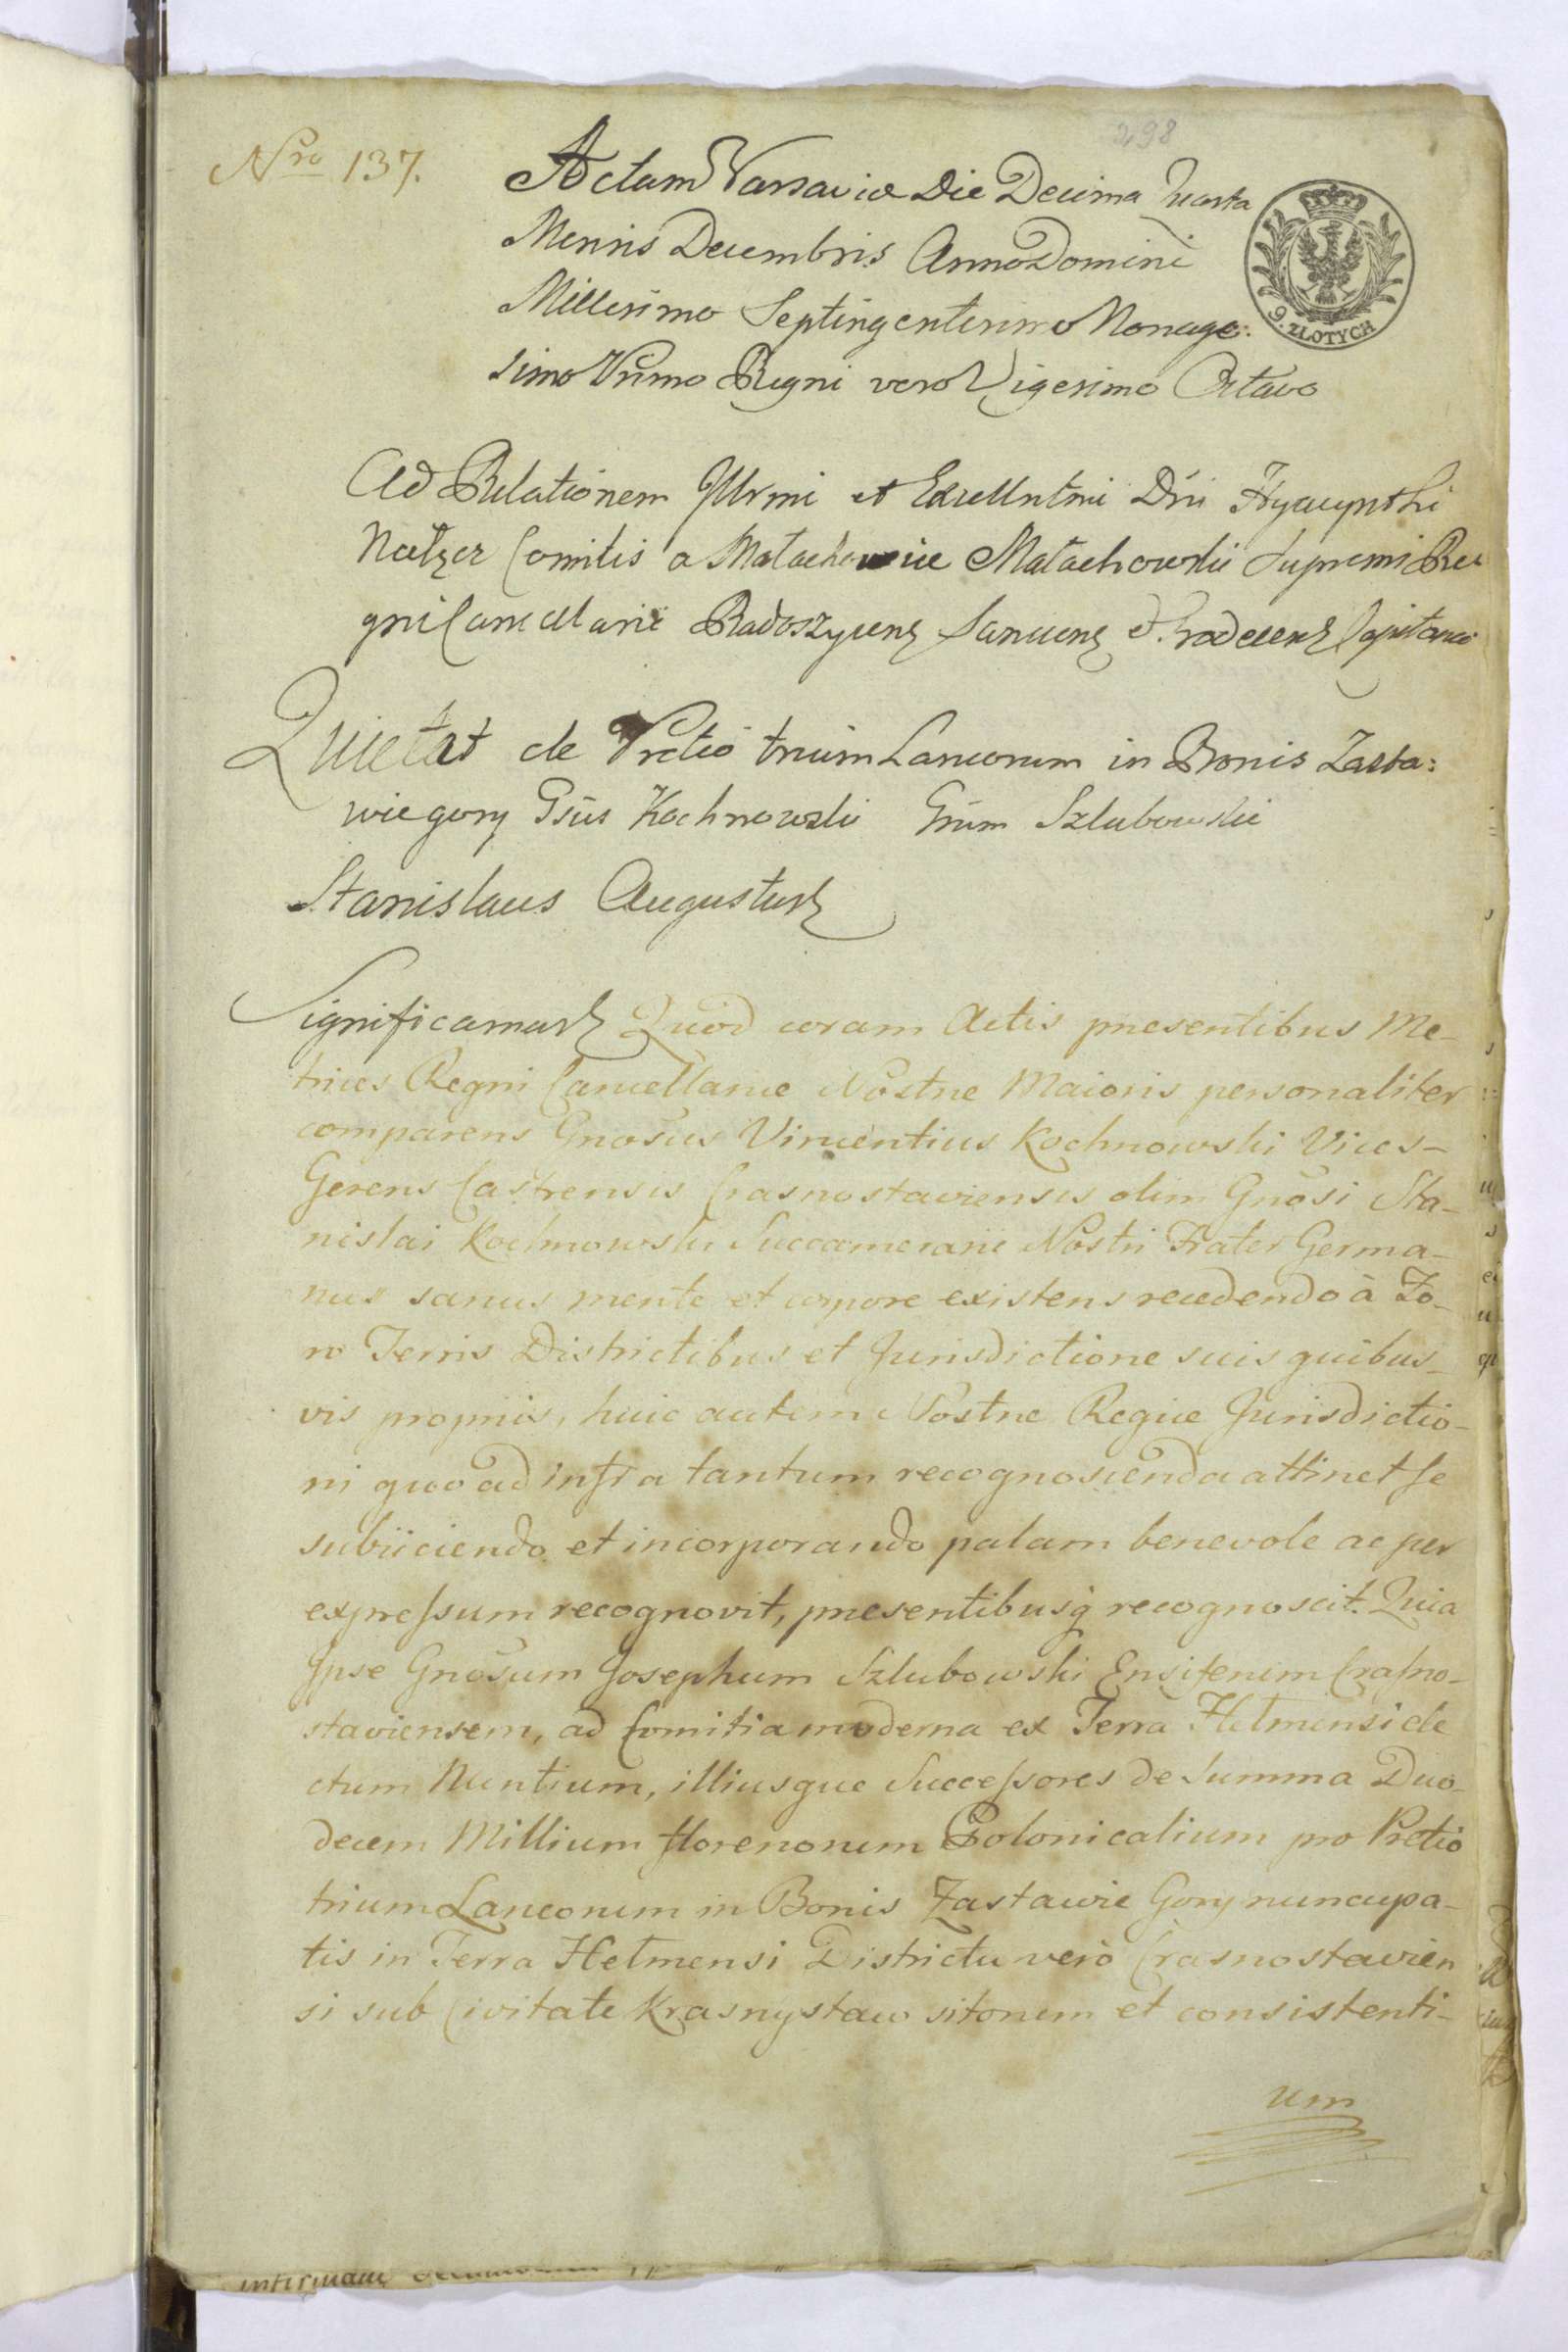 298
Nro 137.
Actum Varsaviæ Die Decima Quarta
Mensis Decembris Anno Domini
Millesimo Septingentesimo Nonage:
simo Primo Regni vero Vigesimo Octavo
9. ZŁOTYCH
Ad Relationem Illrmi et Excellntmi Dni Hyacynthi
Nałęcz Comitis a Małachowice Małachowski Supremi Re
gni Cancellarii Radoszycens Sanicens Grodecens Capitanei
Quietat de Pretio trium Laneorum in Bonis Zasta:
wie gory Gsus Kochnowski Gsum Szlubowski
Stanislaus Augustus
Significamus Quod coram Actis præsentibus Me-
trices Regni Cancellariæ Nostræ Maioris personaliter
comparens Gnosus Vincentius Kochnowski Vices-
Gerens Castrensis Crasnostaviensis olim Gnosi Sta-
nislai Kochnowski Succamerarii Nostri Frater Germa-
nus sanus mente et corpore existens recedendo à Fo-
ro Terris Districtibus et Jurisdictione suis quibus-
vis propriis, huic autem Nostræ Regiæ Jurisdictio-
ni quo ad infra tantum recognoscenda attinet se
subiiciendo et incorporando palam benevole ac per
expressum recognovit, præsentibusq recognoscit. Quia
Ipse Gnosum Josephum Szlubowski Ensiferum Crasno-
staviensem, ad Comitia moderna ex Terra Helmensi ele
ctum Nuntium, illiusque Successores de Summa Duo-
decem Millium florenorum Polonicalium pro Pretio
trium Laneorum in Bonis Zastawie Gory nuncupa-
tis in Terra Helmensi Districtu verò Crasnostavien
si sub Civitate Krasnystaw sitorum et consistenti-
um